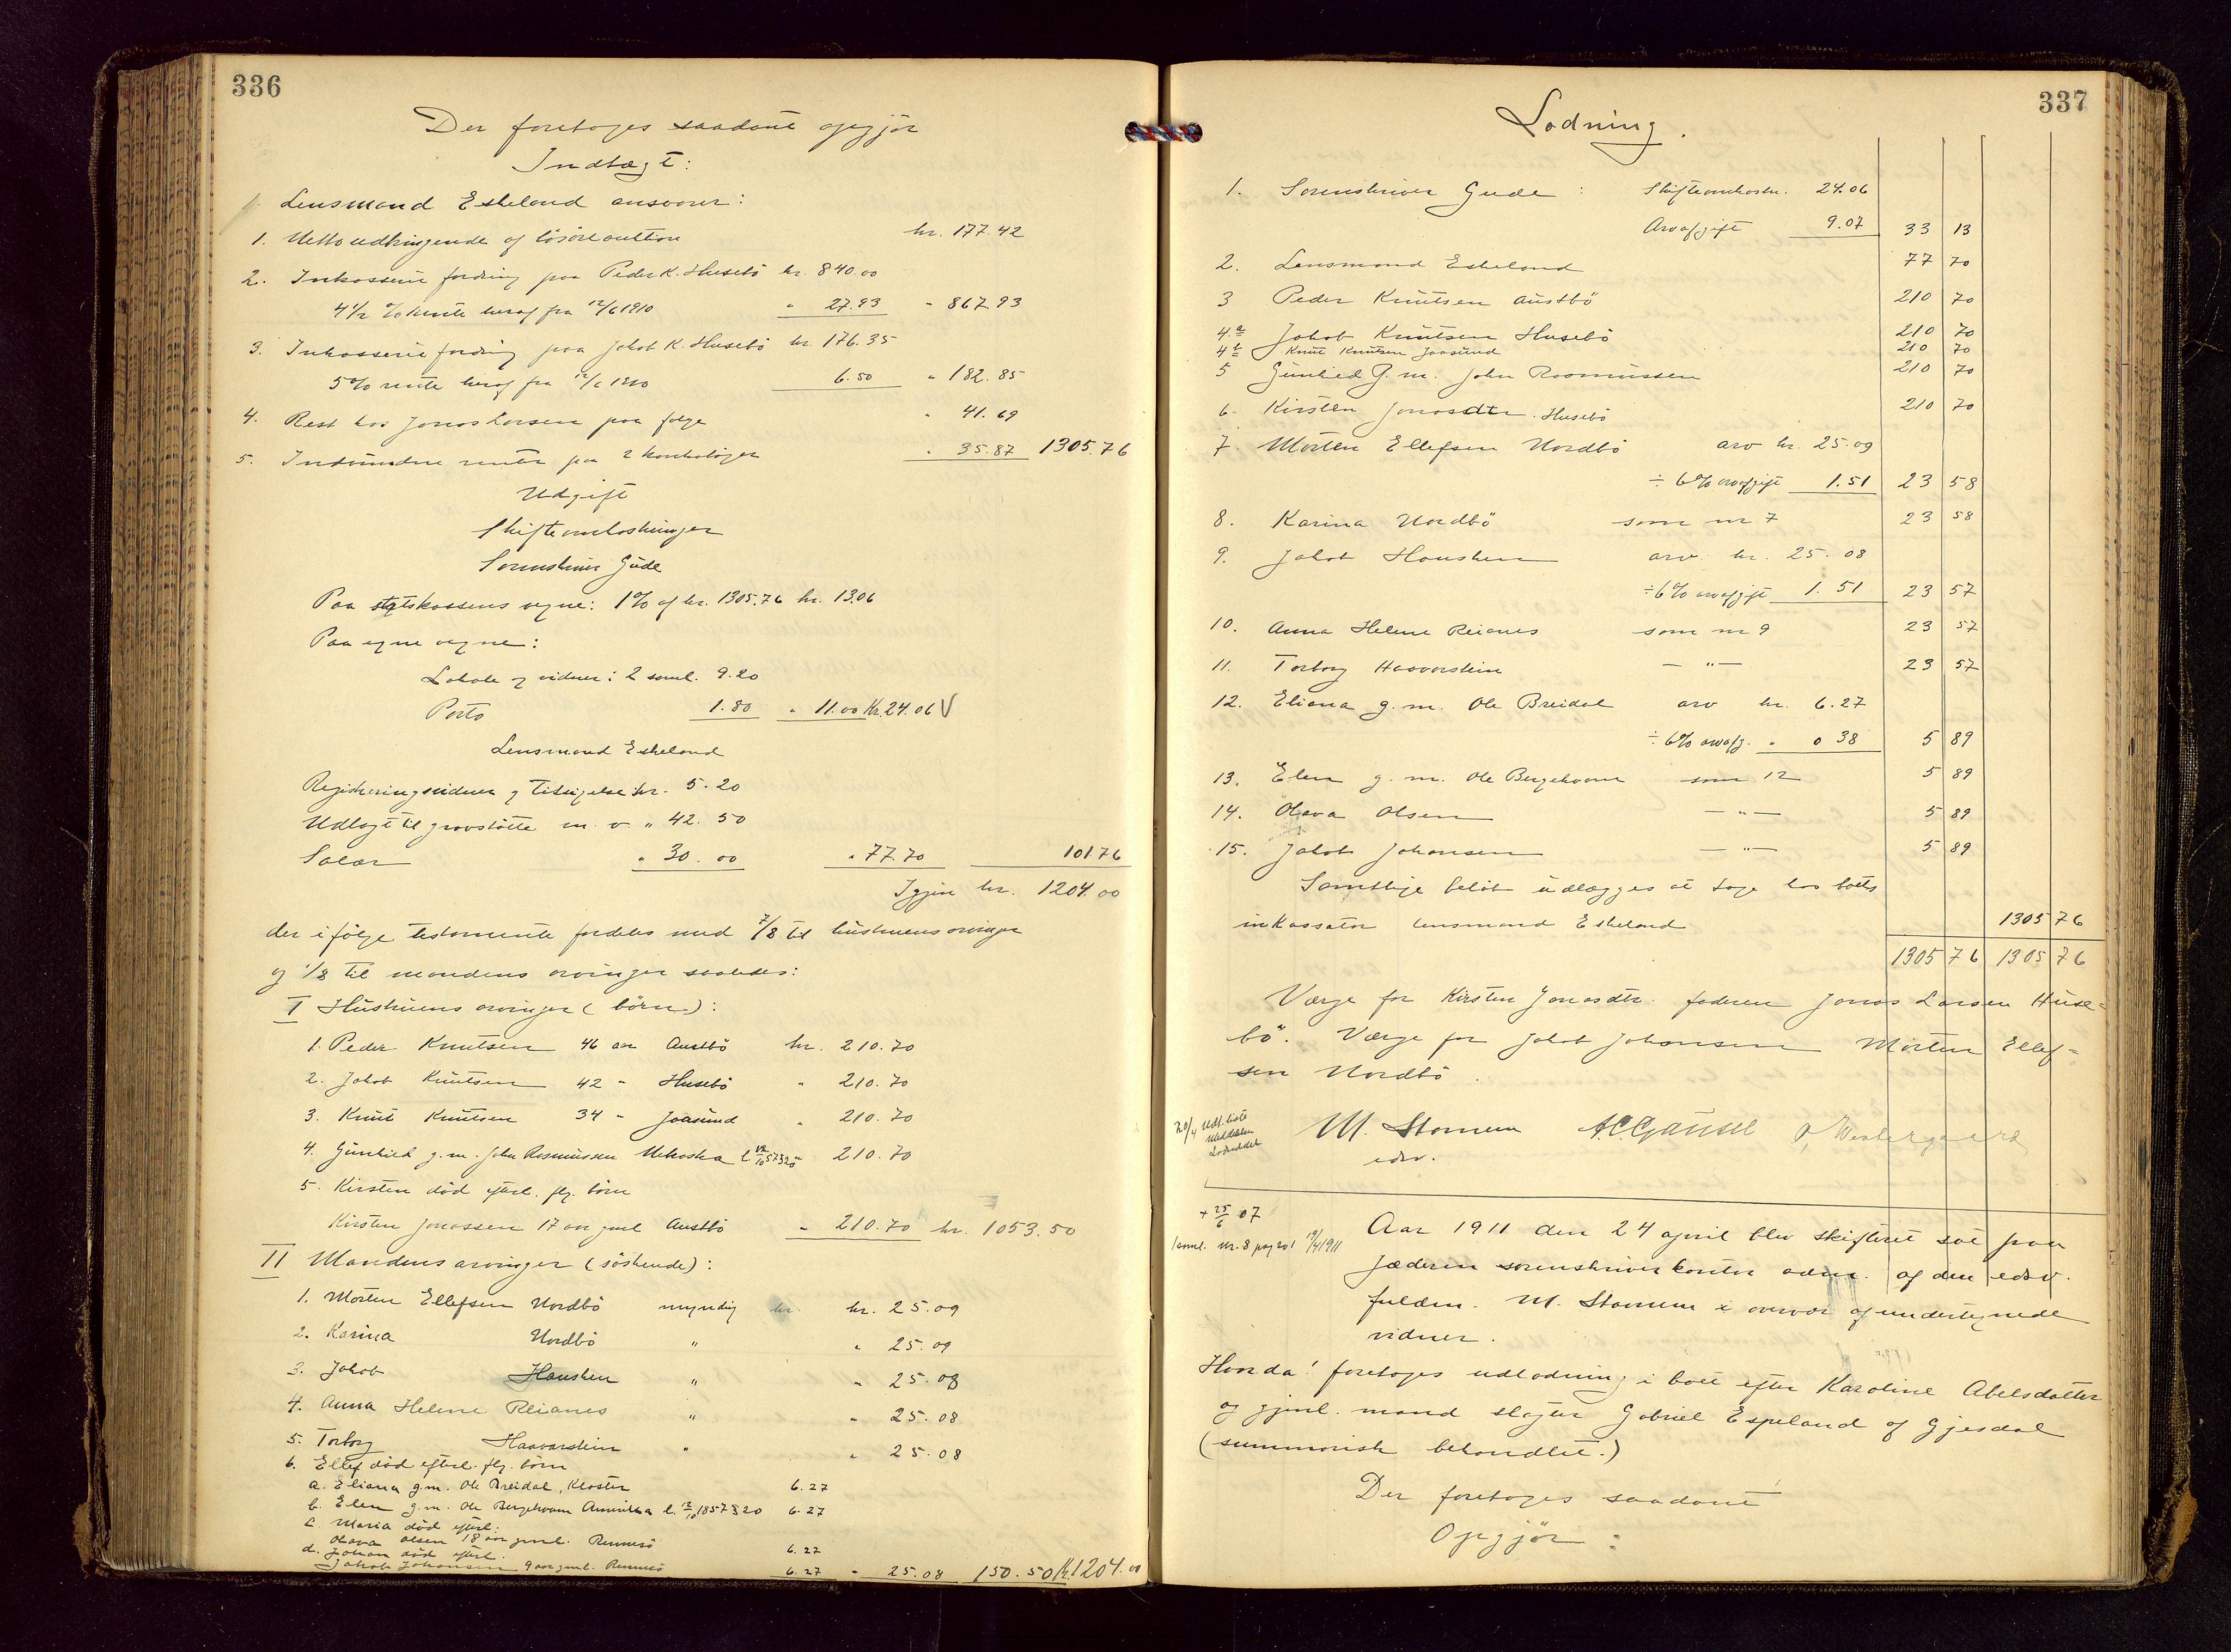 336
Der foretages saadant opgjör
Indtægt:
Lensmand Eskeland ansvarer:
1. Nettoudbringende af lösöreauktion kr. 177.42
2. Inkasserte fordring paa Peder K. Husebö kr. 840.00
4 1/2 % rente herav fra 12/6 1910 " 27.93 " 867.93
3. Inkasserte fordring paa Jakob K. Husebö kr. 176.35
5 % rente herav fra 12/6 1910 6.50 " 182.85
4. Rest hos Jonas Larsen paa følge " 41.69
5. Indvundne renter paa 2 bankböger " 35.87 1305.76
Udgift
Skifteomkostninger
Sorenskriver Gude
Paa statskassens vegne: 1% af kr. 1305.76 kr. 13.06
Paa egne vegne:
Lokale og vidner: 2 saml. 9.20
Porto 1.80 " 11.00 Kr. 24.06 V
Lensmand Eskeland
Registreringsvidner og tilsigelse kr. 5.20
Udlagt til gravstötte m. v. " 42.50
Salær " 30.00 " 77.70 101.76
Igjen kr. 1204.00
der ifölge testamente fordeles med 7/8 til hustruens arvinger
og 1/8 til mandens arvinger saaledes:
I Hustruens arvinger (börn):
1. Peder Knutsen 46 aar Austbö kr. 210.70
2. Jakob Knutsen 42 " Husebö " 210.70
3. Knut Knutsen 34 " Jaasund " 210.70
4. Gunhild g. m. John Rasmussen Amerika l. 12/10 57 § 20 210.70
5. Kirsten död efterl. flg. börn
Kirsten Jonassen 17 aar gml Austbö " 210.70 kr. 1053.50
II Mandens arvinger (söskende):
1. Morten Ellefsen Nordbö myndig kr. 25.09
2. Karina Nordbö " " 25.09
3. Jakob Hausken " " 25.08
4. Anna Helene Reianes " " 25.08
5. Torborg Haavarstein " " 25.08
6. Ellef död efterl. flg. börn
a. Eliana g. m. Ole Breidal, Kloster 6.27
b. Elen g. m. Ole Bergehavn Amerika l. 12/10 1857 § 20 6.27
c. Maria död efterl.
Olava Olsen 18 aar gml. Rennesö 6.27
d. Johan död efterl.
Jakob Johansen 9 aar gml. Rennesö 6.27 " 25.08 150.50 Kr. 1204.00
337
Lodning.
1. Sorenskriver Gude : Skifteomkostn. 24.06
Arvafgift 9.07 33 13
2. Lensmand Eskeland 77 70
3 Peder Knutsen Austbö 210 70
4.a Jakob Knutsen Husebö 210 70
4 b Knut Knutsen Jaasund 210 70
5 Gunhild g. m. John Rasmussen 210 70
6. Kirsten Jonasdtr. Husebö 210 70
7. Morten Ellefsen Nordbö arv kr. 25.09
÷ 6% arvafgift 1.51 23 58
8. Karina Nordbö som nr 7 23 58
9. Jakob Hausken arv kr. 25.08
÷ 6% arvafgift 1.51 23 57
10. Anna Helene Reianes som nr 9 23 57
11. Torborg Haavarstein — " — 23 57
12. Eliana g. m. Ole Breidal arv kr. 6.27
÷ 6% arvafg. " 0 38 5 89
13. Elen g. m. Ole Bergehavn som 12 5 89
14. Olava Olsen — " — 5 89
15. Jakob Johansen — " — 5 89
Samtlige belöb udlægges at tage hos boets
inkassator lensmand Eskeland 1305 76
1305 76 1305 76
Værge for Kirsten Jonasdtr. faderen Jonas Larsen Huse-
bö. Værge for Jakob Johansen Morten Ellef-
sen Nordbö.
20/4 Udl. liste
Meddelelse
Lodseddel
M. Stamnen A. C. Gausel P. Westergaard
edsv.
+ 25/6 07
1 saml. Nr. 8 pag 201 19/4 1911
Aar 1911 den 24 april blev skifteret sat paa
Jæderen sorenskriverkontor adm. af den edsv.
fuldm. M. Stamnen i overvær af undertegnede
vidner.
Hvorda! foretages udlodning i boet efter Karoline Abelsdatter
og gjenl. mand slagter Gabriel Espeland af Gjesdal
(summarisk behandlet.)
Der foretages saadant
Opgjör :